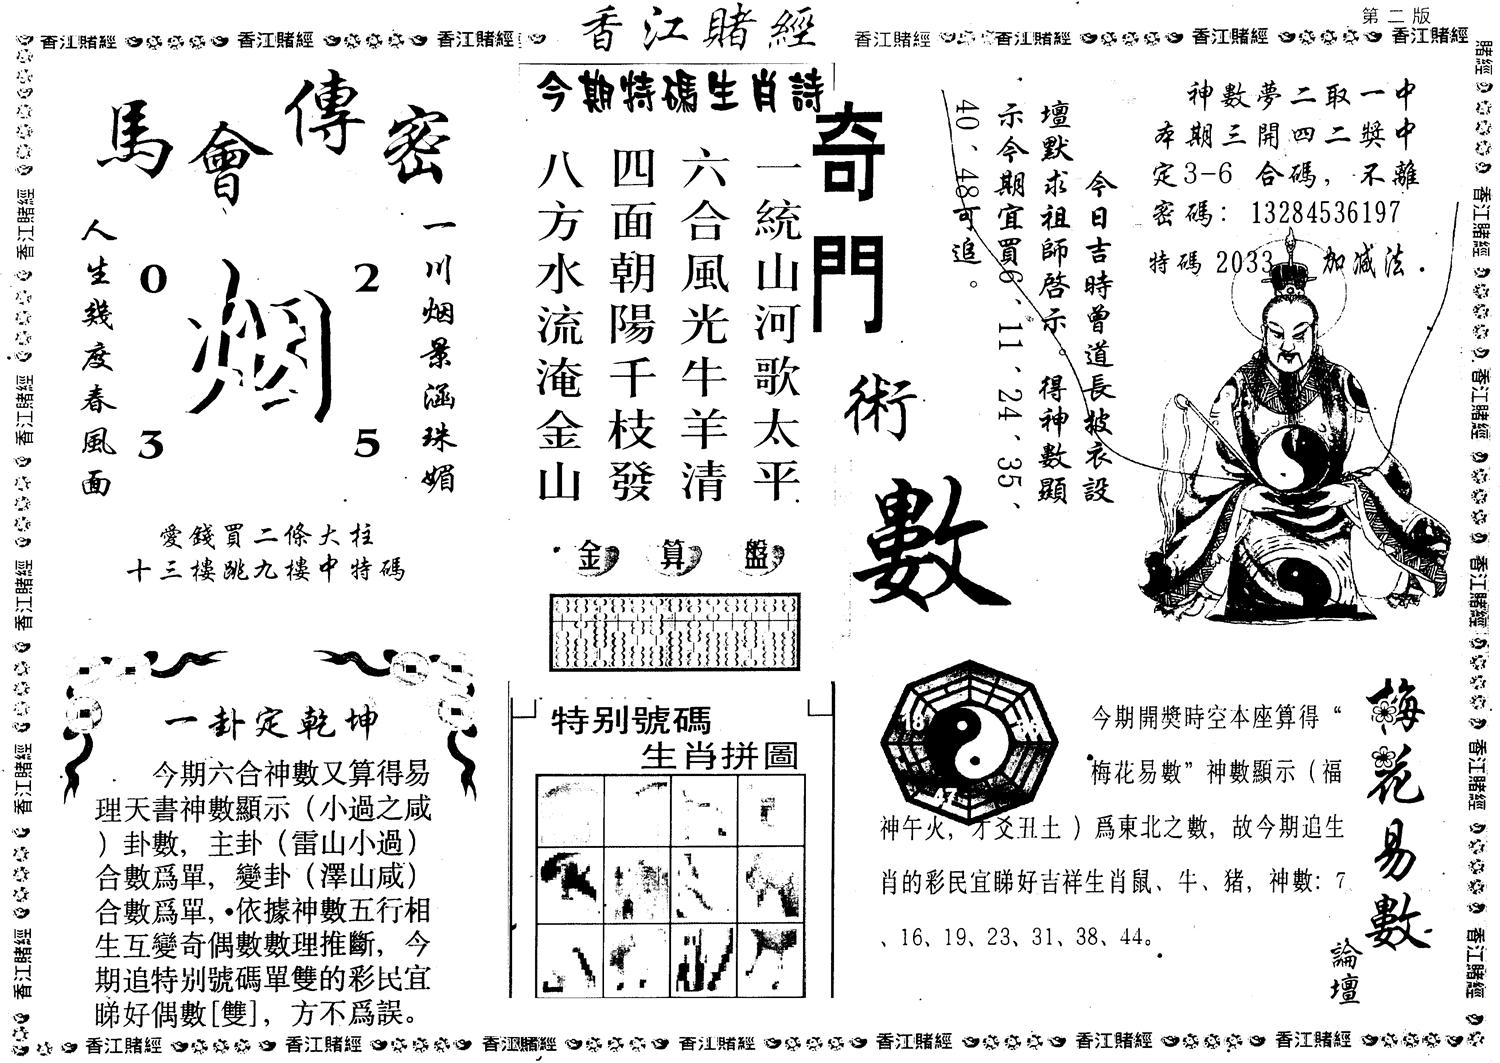 第二版
香江賭經
馬會傳密
一川烟景涵珠媚
人生幾度春風面
0
2
3
5
愛錢買二條大柱
十三樓跳九樓中特碼
今期特碼生肖詩
一統山河歌太平
六合風光牛羊清
四面朝陽千枝發
八方水流淹金山
金算盤
奇門術數
神數夢二取一中
本期三開四二獎中
定3-6 合碼，不離
密碼：13284536197
特碼 2033 加減法．
今日吉時曾道長披衣設
壇默求祖師啓示。得神數顯
示今期宜買6、11、24、35、
40、48可追。
一卦定乾坤
今期六合神數又算得易
理天書神數顯示（小過之咸
）卦數，主卦（雷山小過）
合數爲單，變卦（澤山咸）
合數爲單，依據神數五行相
生互變奇偶數數理推斷，今
期追特别號碼單雙的彩民宜
睇好偶數[雙]，方不爲誤。
特别號碼
生肖拼圖
梅花易數
論壇
今期開獎時空本座算得“
梅花易數”神數顯示（福
神午火，才爻丑土）爲東北之數，故今期追生
肖的彩民宜睇好吉祥生肖鼠、牛、猪，神數：7
、16、19、23、31、38、44。